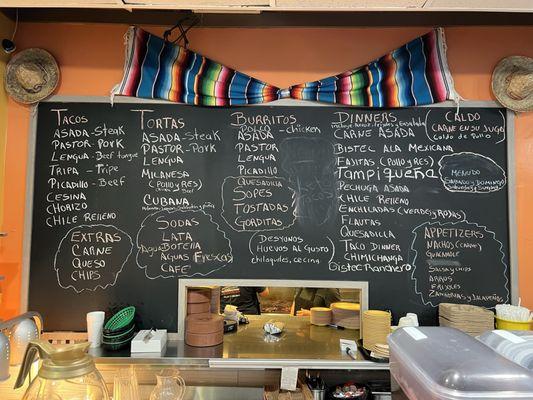 Tacos
Asada - Steak
Pastor - Pork
Lengua - Beef tongue
Tripa - Tripe
Picadillo - Beef
Cesina
Chorizo
Chile Relleno
Extras
Carne
Queso
Chips
Tortas
Asada - Steak
Pastor - Pork
Lengua
Milanesa
(Pollo y Res)
Cubana
Sodas
Lata
Agua Botella
Aguas Frescas
Cafe
Burritos
Pollo - Chicken
Asada
Pastor
Lengua
Picadillo
Quesadilla
Sopes
Tostadas
Gorditas
Desyunos
Huevos al Gusto
chilaquiles, cecina
Dinners
Carne Asada
Bistec ala Mexicana
Fajitas (Pollo y Res)
Tampiqueña
Pechuga Asada
Chile Relleno
Enchiladas (verdes y rojas)
Flautas
Quesadilla
Taco Dinner
Chimichanga
Bistec Ranchero
Caldo
Carne en su Jugo
Caldo de Res
Menudo
Sabado y Domingo
Appetizers
Nacho (carne)
Guacamole
Salsa y chips
Arros
Frijoles